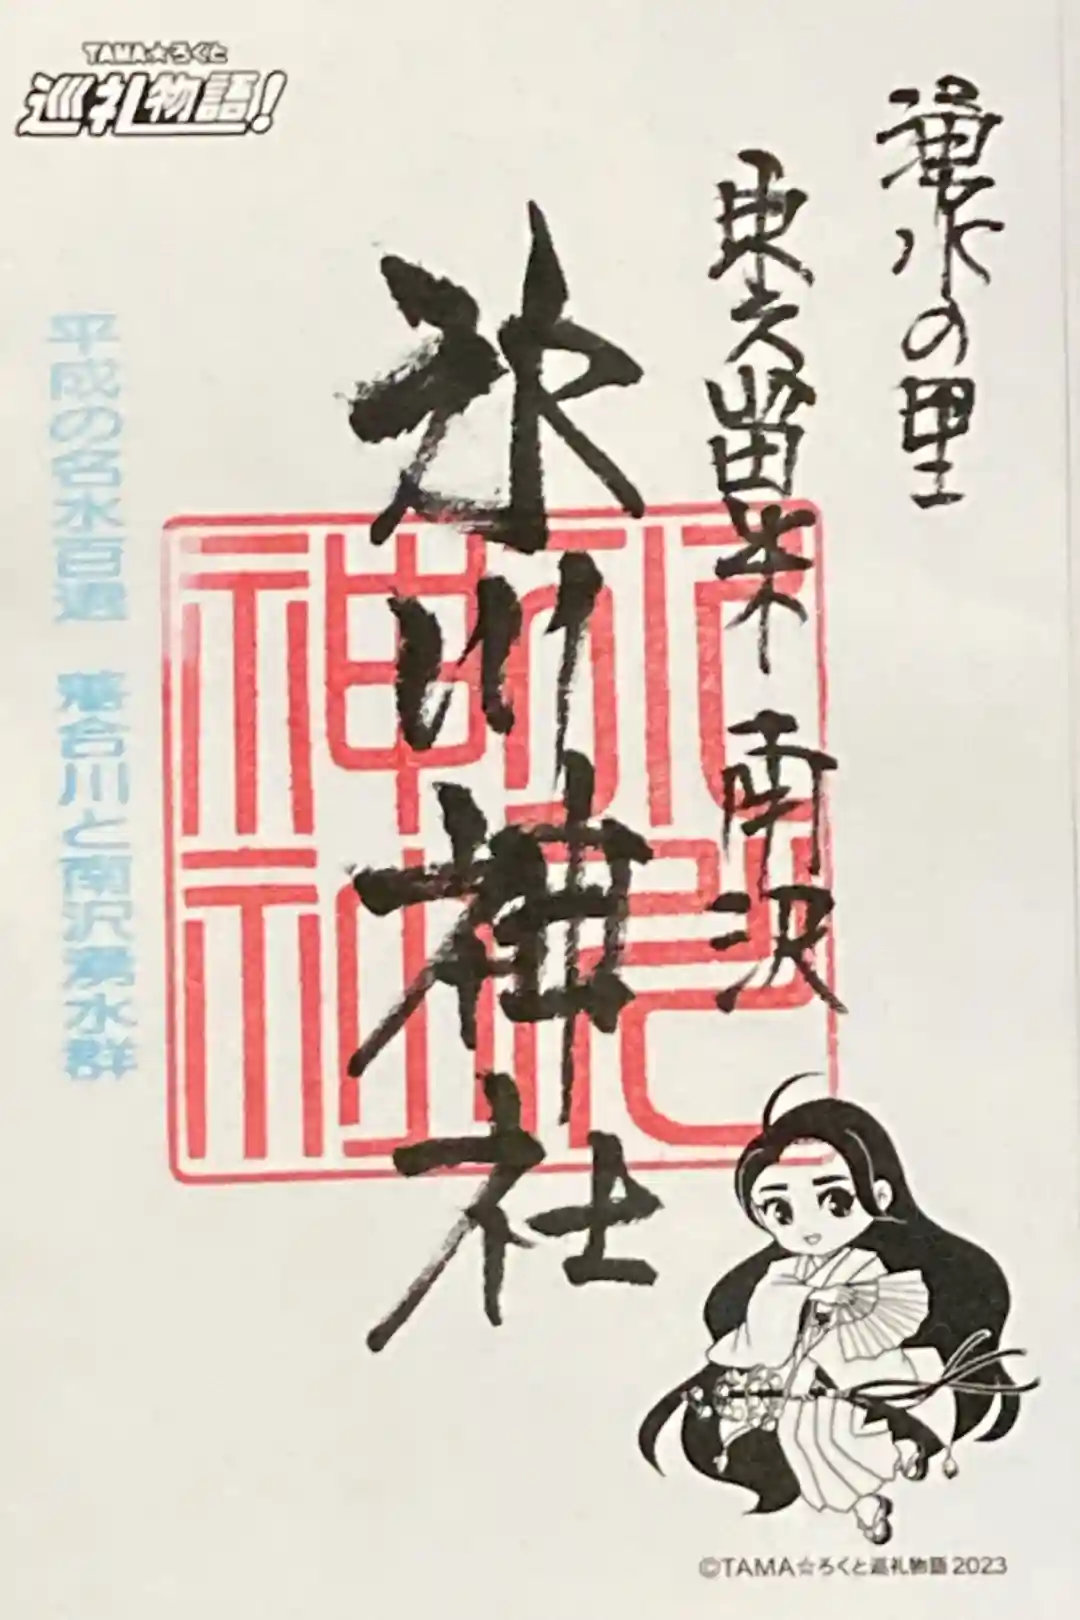 TAMA☆ろくと
巡礼物語!
湧水の里
東久留米 南沢
氷川神社
平成の名水百選 落合川と南沢湧水群
©TAMA☆ろくと巡礼物語2023